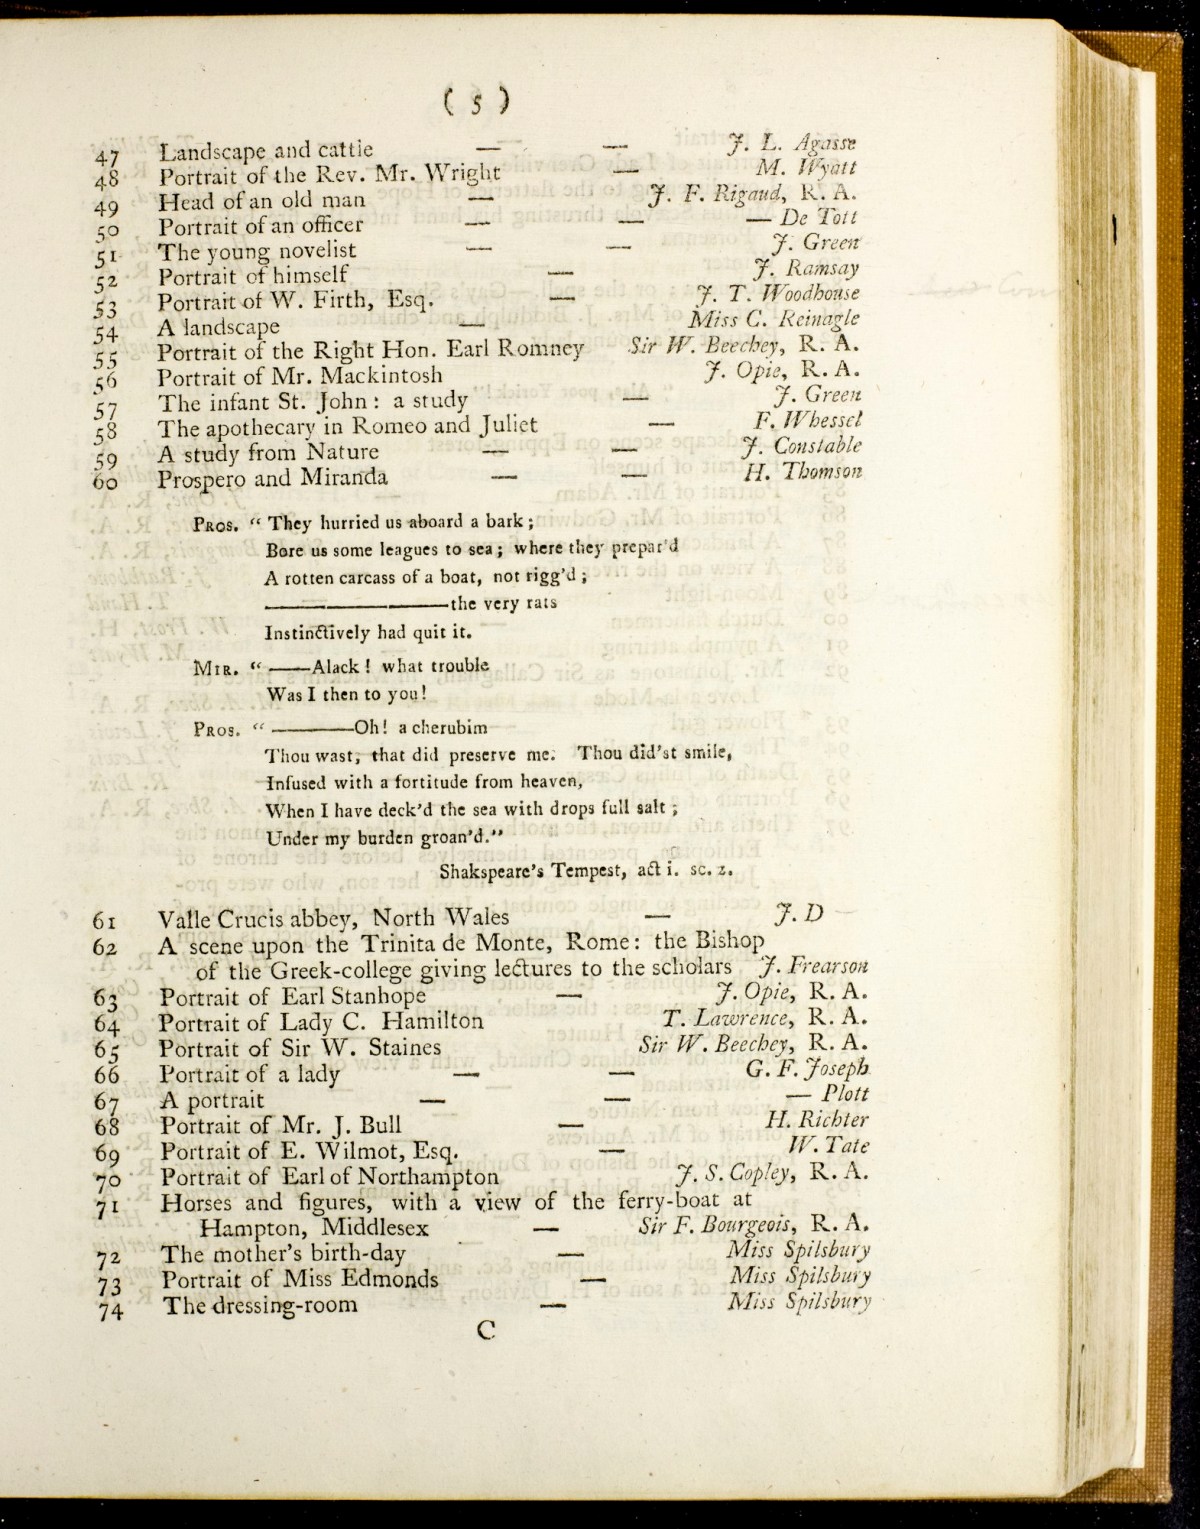 ( 5 )
47 Landscape and cattle — — J. L. Agasse
48 Portrait of the Rev. Mr. Wright — M. Wyatt
49 Head of an old man — J. F. Rigaud, R. A.
50 Portrait of an officer — — — De Tott
51 The young novelist — — J. Green
52 Portrait of himself — J. Ramsay
53 Portrait of W. Firth, Esq. — J. T. Woodhouse
54 A landscape — Miss C. Reinagle
55 Portrait of the Right Hon. Earl Romney Sir W. Beechey, R. A.
56 Portrait of Mr. Mackintosh J. Opie, R. A.
57 The infant St. John: a study — J. Green
58 The apothecary in Romeo and Juliet — F. Whessel
59 A study from Nature — — J. Constable
60 Prospero and Miranda — — H. Thomson
PROS. “ They hurried us aboard a bark;
Bore us some leagues to sea; where they prepar'd
A rotten carcass of a boat, not rigg'd;
—————the very rats
Instinctively had quit it.
MIR. “ ——Alack! what trouble
Was I then to you!
PROS. “ ———Oh! a cherubim
Thou wast, that did preserve me. Thou did'st smile,
Infused with a fortitude from heaven,
When I have deck'd the sea with drops full salt;
Under my burden groan'd.”
Shakspeare's Tempest, act i. sc. 2.
61 Valle Crucis abbey, North Wales — J. D
62 A scene upon the Trinita de Monte, Rome: the Bishop
of the Greek-college giving lectures to the scholars J. Frearson
63 Portrait of Earl Stanhope — J. Opie, R. A.
64 Portrait of Lady C. Hamilton T. Lawrence, R. A.
65 Portrait of Sir W. Staines Sir W. Beechey, R. A.
66 Portrait of a lady — — G. F. Joseph
67 A portrait — — — Plott
68 Portrait of Mr. J. Bull — H. Richter
69 Portrait of E. Wilmot, Esq. — W. Tate
70 Portrait of Earl of Northampton J. S. Copley, R. A.
71 Horses and figures, with a view of the ferry-boat at
Hampton, Middlesex — Sir F. Bourgeois, R. A.
72 The mother's birth-day — Miss Spilsbury
73 Portrait of Miss Edmonds — Miss Spilsbury
74 The dressing-room — Miss Spilsbury
C